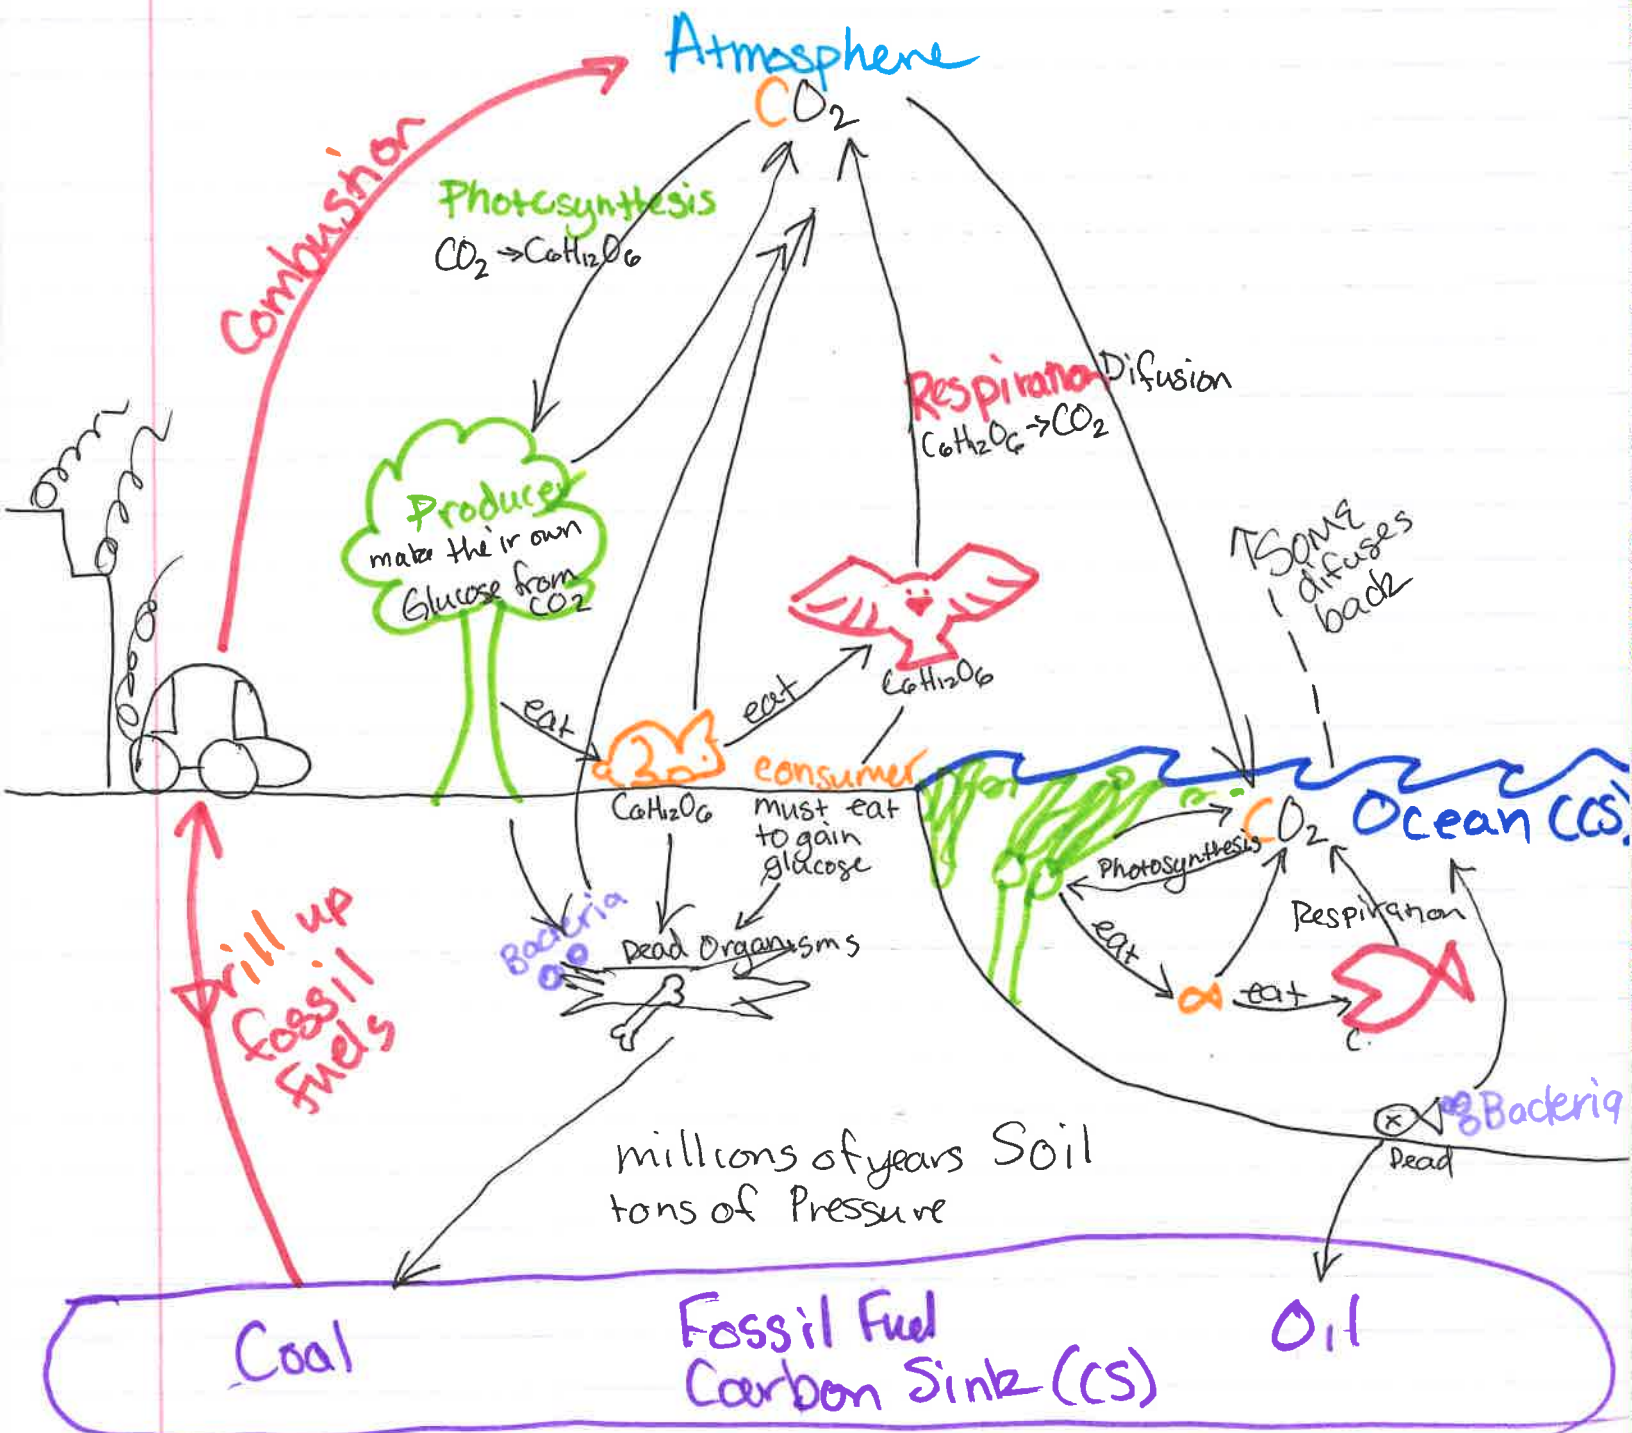 Atmosphere
CO₂
Combustion
Photosynthesis
CO₂ → C₆H₁₂O₆
Respiration
C₆H₁₂O₆ → CO₂
Difusion
Producer
make their own
Glucose from
CO₂
↑ Some
difuses
back
eat
eat
C₆H₁₂O₆
C₆H₁₂O₆
consumer
must eat
to gain
glucose
Ocean (CS)
CO₂
Photosynthesis
Respiration
eat
eat
C.
Drill up
fossil
fuels
Bacteria
Dead Organisms
Bacteria
Dead
millions of years Soil
tons of Pressure
Coal
Fossil Fuel
Carbon Sink (CS)
Oil